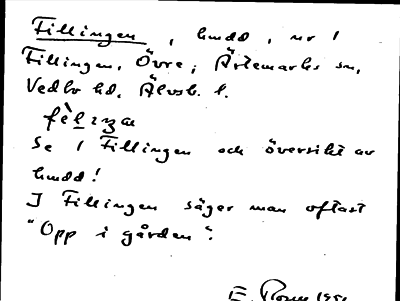 Fillingen, hmdd, nr 1
Fillingen, Övre; Ärtemarks sn,
Vedbo hd, Älvsb. l.
fè̀lıŋa
Se / Fillingen och översikt av
hmdd!
I Fillingen säger man oftast
"Opp i gården".
E.